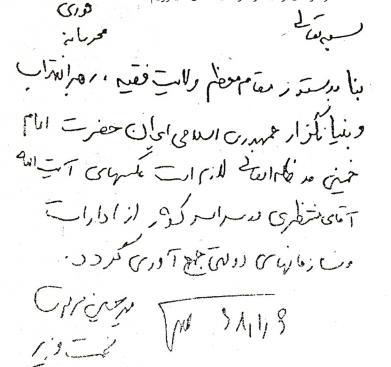 فوری
محرمانه
بسمه تعالی
بنا بدستور مقام معظم ولایت فقیه، رهبر انقلاب
و بنیانگزار جمهوری اسلامی ایران حضرت امام
خمینی مد ظله العالی لازم است عکسهای آیت الله
آقای منتظری در سراسر کشور از ادارات
و سازمانهای دولتی جمع آوری گردد.
میرحسین موسوی
نخست وزیر
۶۸/۱/۹